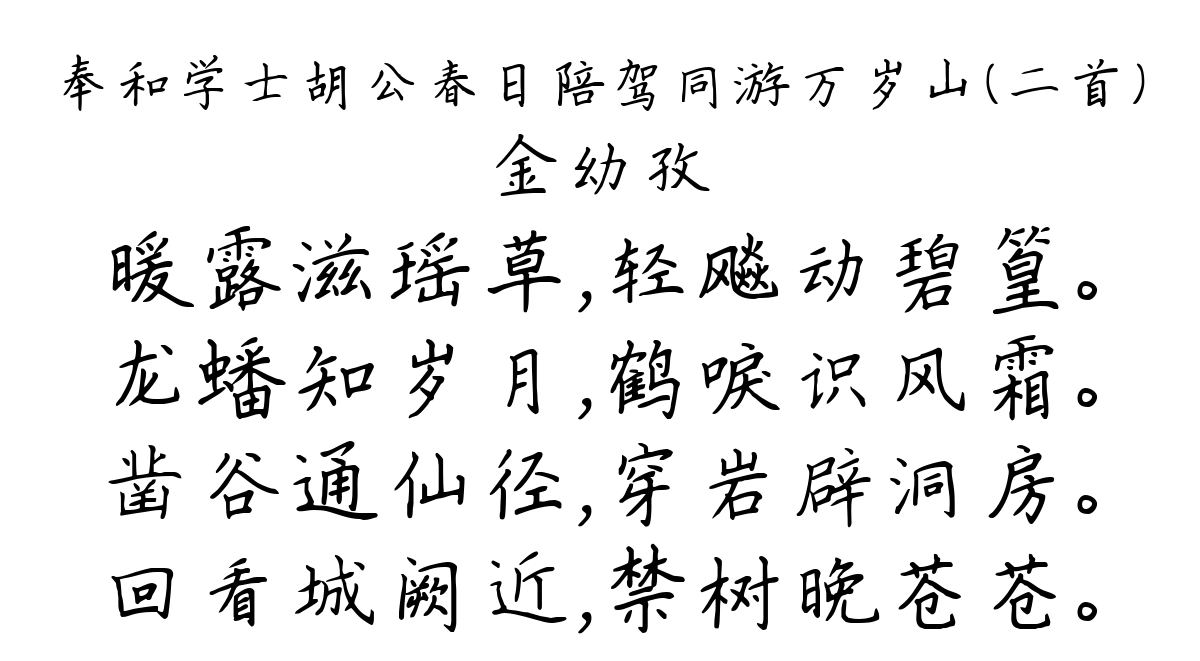 奉和学士胡公春日陪驾同游万岁山(二首)
金幼孜
暖露滋瑶草,轻飚动碧篁。
龙蟠知岁月,鹤唳识风霜。
凿谷通仙径,穿岩辟洞房。
回看城阙近,禁树晚苍苍。